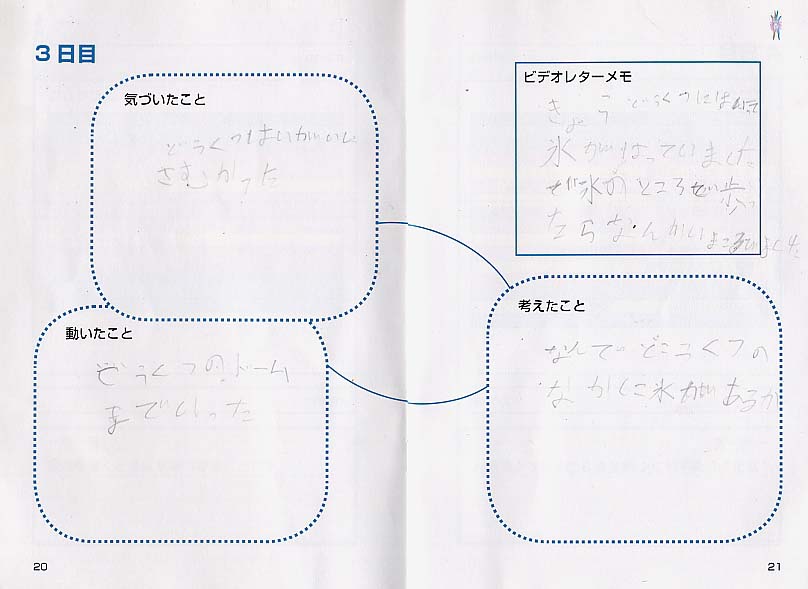 3日目
気づいたこと
どうくつはいがいに
さむかった
動いたこと
どうくつのドーム
までいった
20
ビデオレターメモ
きょうどうくつには
氷がはっていました
氷のところで歩っ
たらなんかい
考えたこと
なんでどうくつの
なかに氷があるか
21